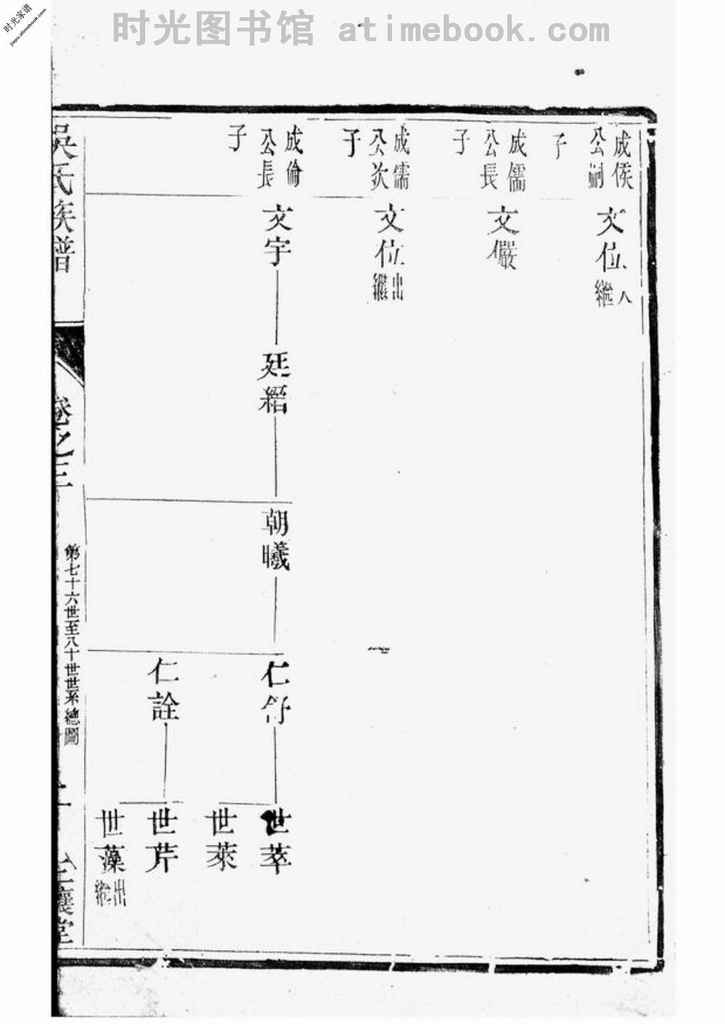 时光图书馆 atimebook.com
时光家谱
成侯公嗣子
文位入繼
成儒公長子
文儼
成儒公次子
文位出繼
成倫公長子
文宇
廷縉
朝曦
仁舒
世萃
世萊
仁詮
世芹
世藻出繼
吳氏族譜
卷之三
第七十六世至八十世世系總圖
讓堂